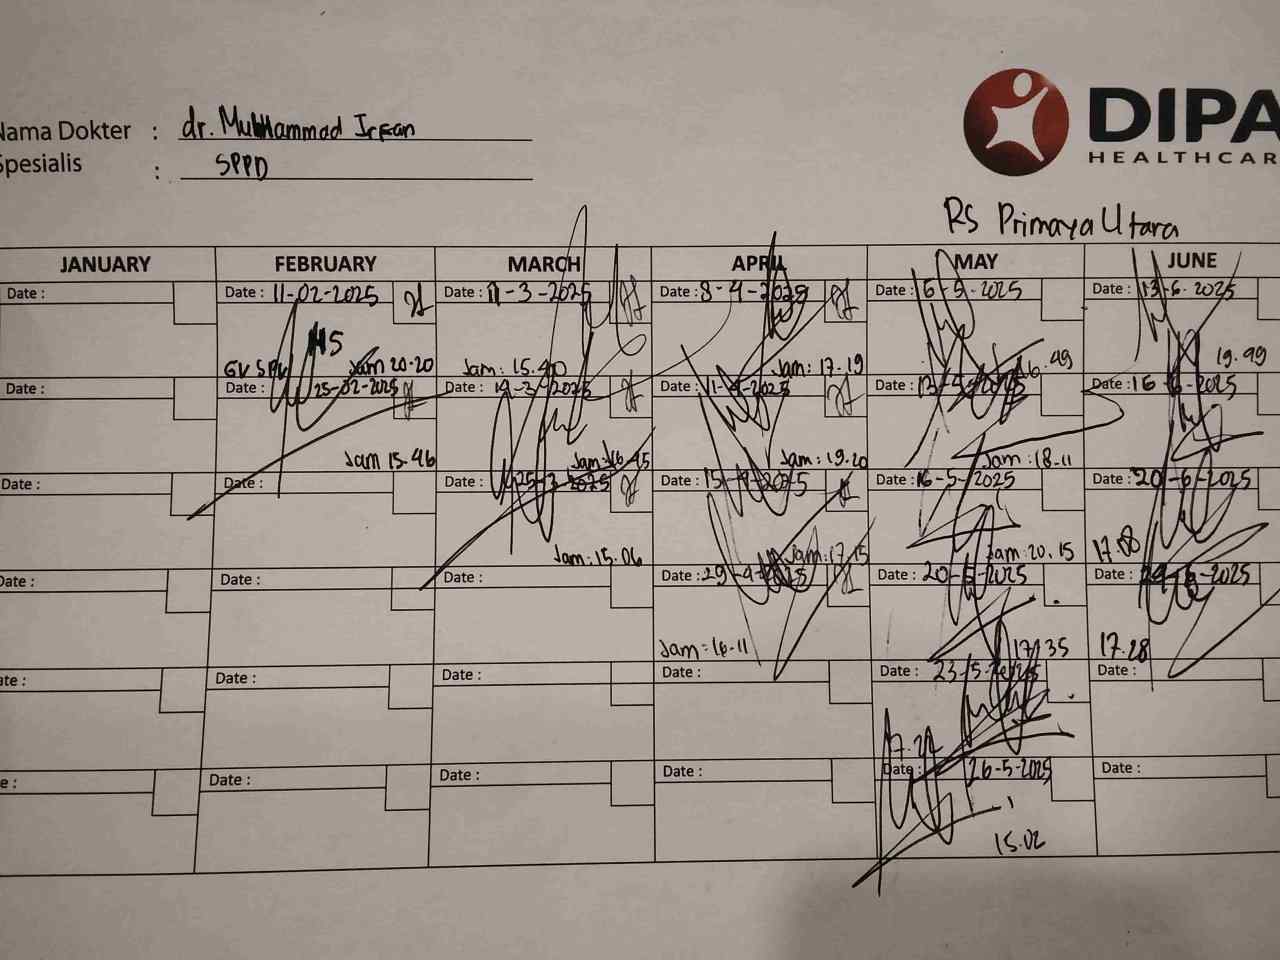 Nama Dokter : dr. Muhammad Irfan
Spesialis : SPPD
DIPA
HEALTHCAR
RS Primaya Utara
JANUARY FEBRUARY MARCH APRIL MAY JUNE
Date : Date : 11-02-2025 Date : 11-3-2025 Date : 8-4-2025 Date : 6-5-2025 Date : 13-6-2025
Jam 20-20 Jam: 15.40 Jam: 17.19 16.49 19.49
Date : 25-02-2025 Date : 19-3-2025 Date : 11-4-2025 Date : 13-5-2025 Date : 16-6-2025
Jam 15.46 Jam: 16.45 Jam: 19.20 Jam: 18.11
Date : Date : Date : 25-3-2025 Date : 15-4-2025 Date : 16-5-2025 Date : 20-6-2025
Jam: 15.06 Jam: 17.15 Jam: 20.15 17.08
Date : Date : Date : Date : 29-4-2025 Date : 20-5-2025 Date : 24-6-2025
Jam: 16-11 17.35 17.28
ate : Date : Date : Date : Date : 23-5-2025 Date :
17.27
e : Date : Date : Date : Date : 26-5-2025 Date :
15.02